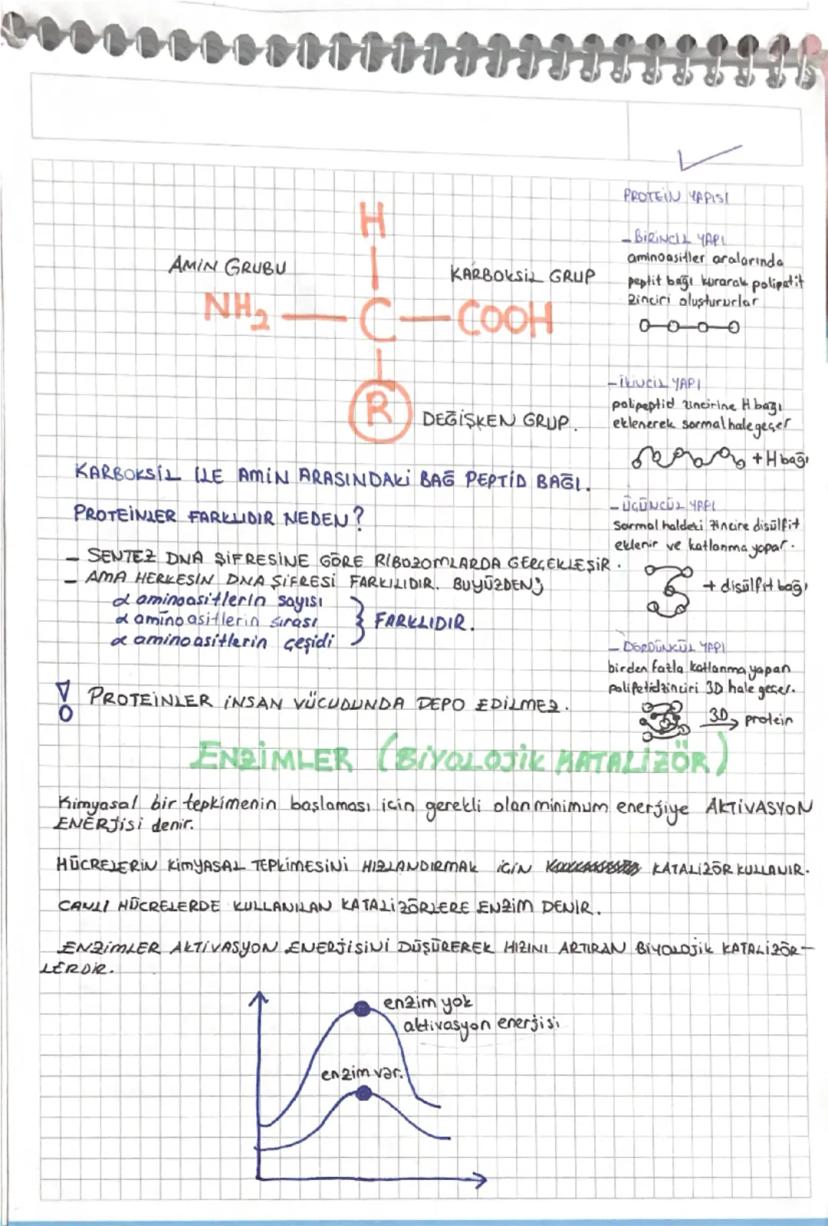 H
AMİN GRUBU
KARBOKSİL GRUP
NH2 — C — COOH
R
DEĞİŞKEN GRUP.
KARBOKSİL İLE AMİN ARASINDAKİ BAĞ PEPTİD BAĞI.
PROTEİNLER FARKLIDIR NEDEN?
- SENTEZ DNA ŞİFRESİNE GÖRE RİBOZOMLARDA GERÇEKLEŞİR.
- AMA HERKESİN DNA ŞİFRESİ FARKLIDIR. BUYÜZDEN;
α aminoasitlerin sayısı
α aminoasitlerin sırası } FARKLIDIR.
α aminoasitlerin çeşidi
! PROTEİNLER İNSAN VÜCUDUNDA DEPO EDİLMEZ.
PROTEİN YAPISI
- BİRİNCİL YAPI
aminoasitler aralarında
peptit bağı kurarak polipetit
zinciri oluştururlar
- İKİNCİL YAPI
polipeptid zincirine H bağı
eklenerek sarmal hale geçer
+ H bağı
- ÜÇÜNCÜL YAPI
sarmal haldeki zincire disülfit
eklenir ve katlanma yapar.
+ disülfit bağı
- DÖRDÜNCÜL YAPI
birden fazla katlanma yapan
polipetidzinciri 3D hale geçer.
3D → protein
ENZİMLER (BİYOLOJİK KATALİZÖR)
Kimyasal bir tepkimenin başlaması için gerekli olan minimum enerjiye AKTİVASYON
ENERJİSİ denir.
HÜCRELERİN KİMYASAL TEPKİMESİNİ HIZLANDIRMAK İÇİN KATALİZÖR KULLANIR.
CANLI HÜCRELERDE KULLANILAN KATALİZÖRLERE ENZİM DENİR.
ENZİMLER AKTİVASYON ENERJİSİNİ DÜŞÜREREK HIZINI ARTIRAN BİYOLOJİK KATALİZÖR-
LERDİR.
enzim yok
aktivasyon enerjisi
enzim var.